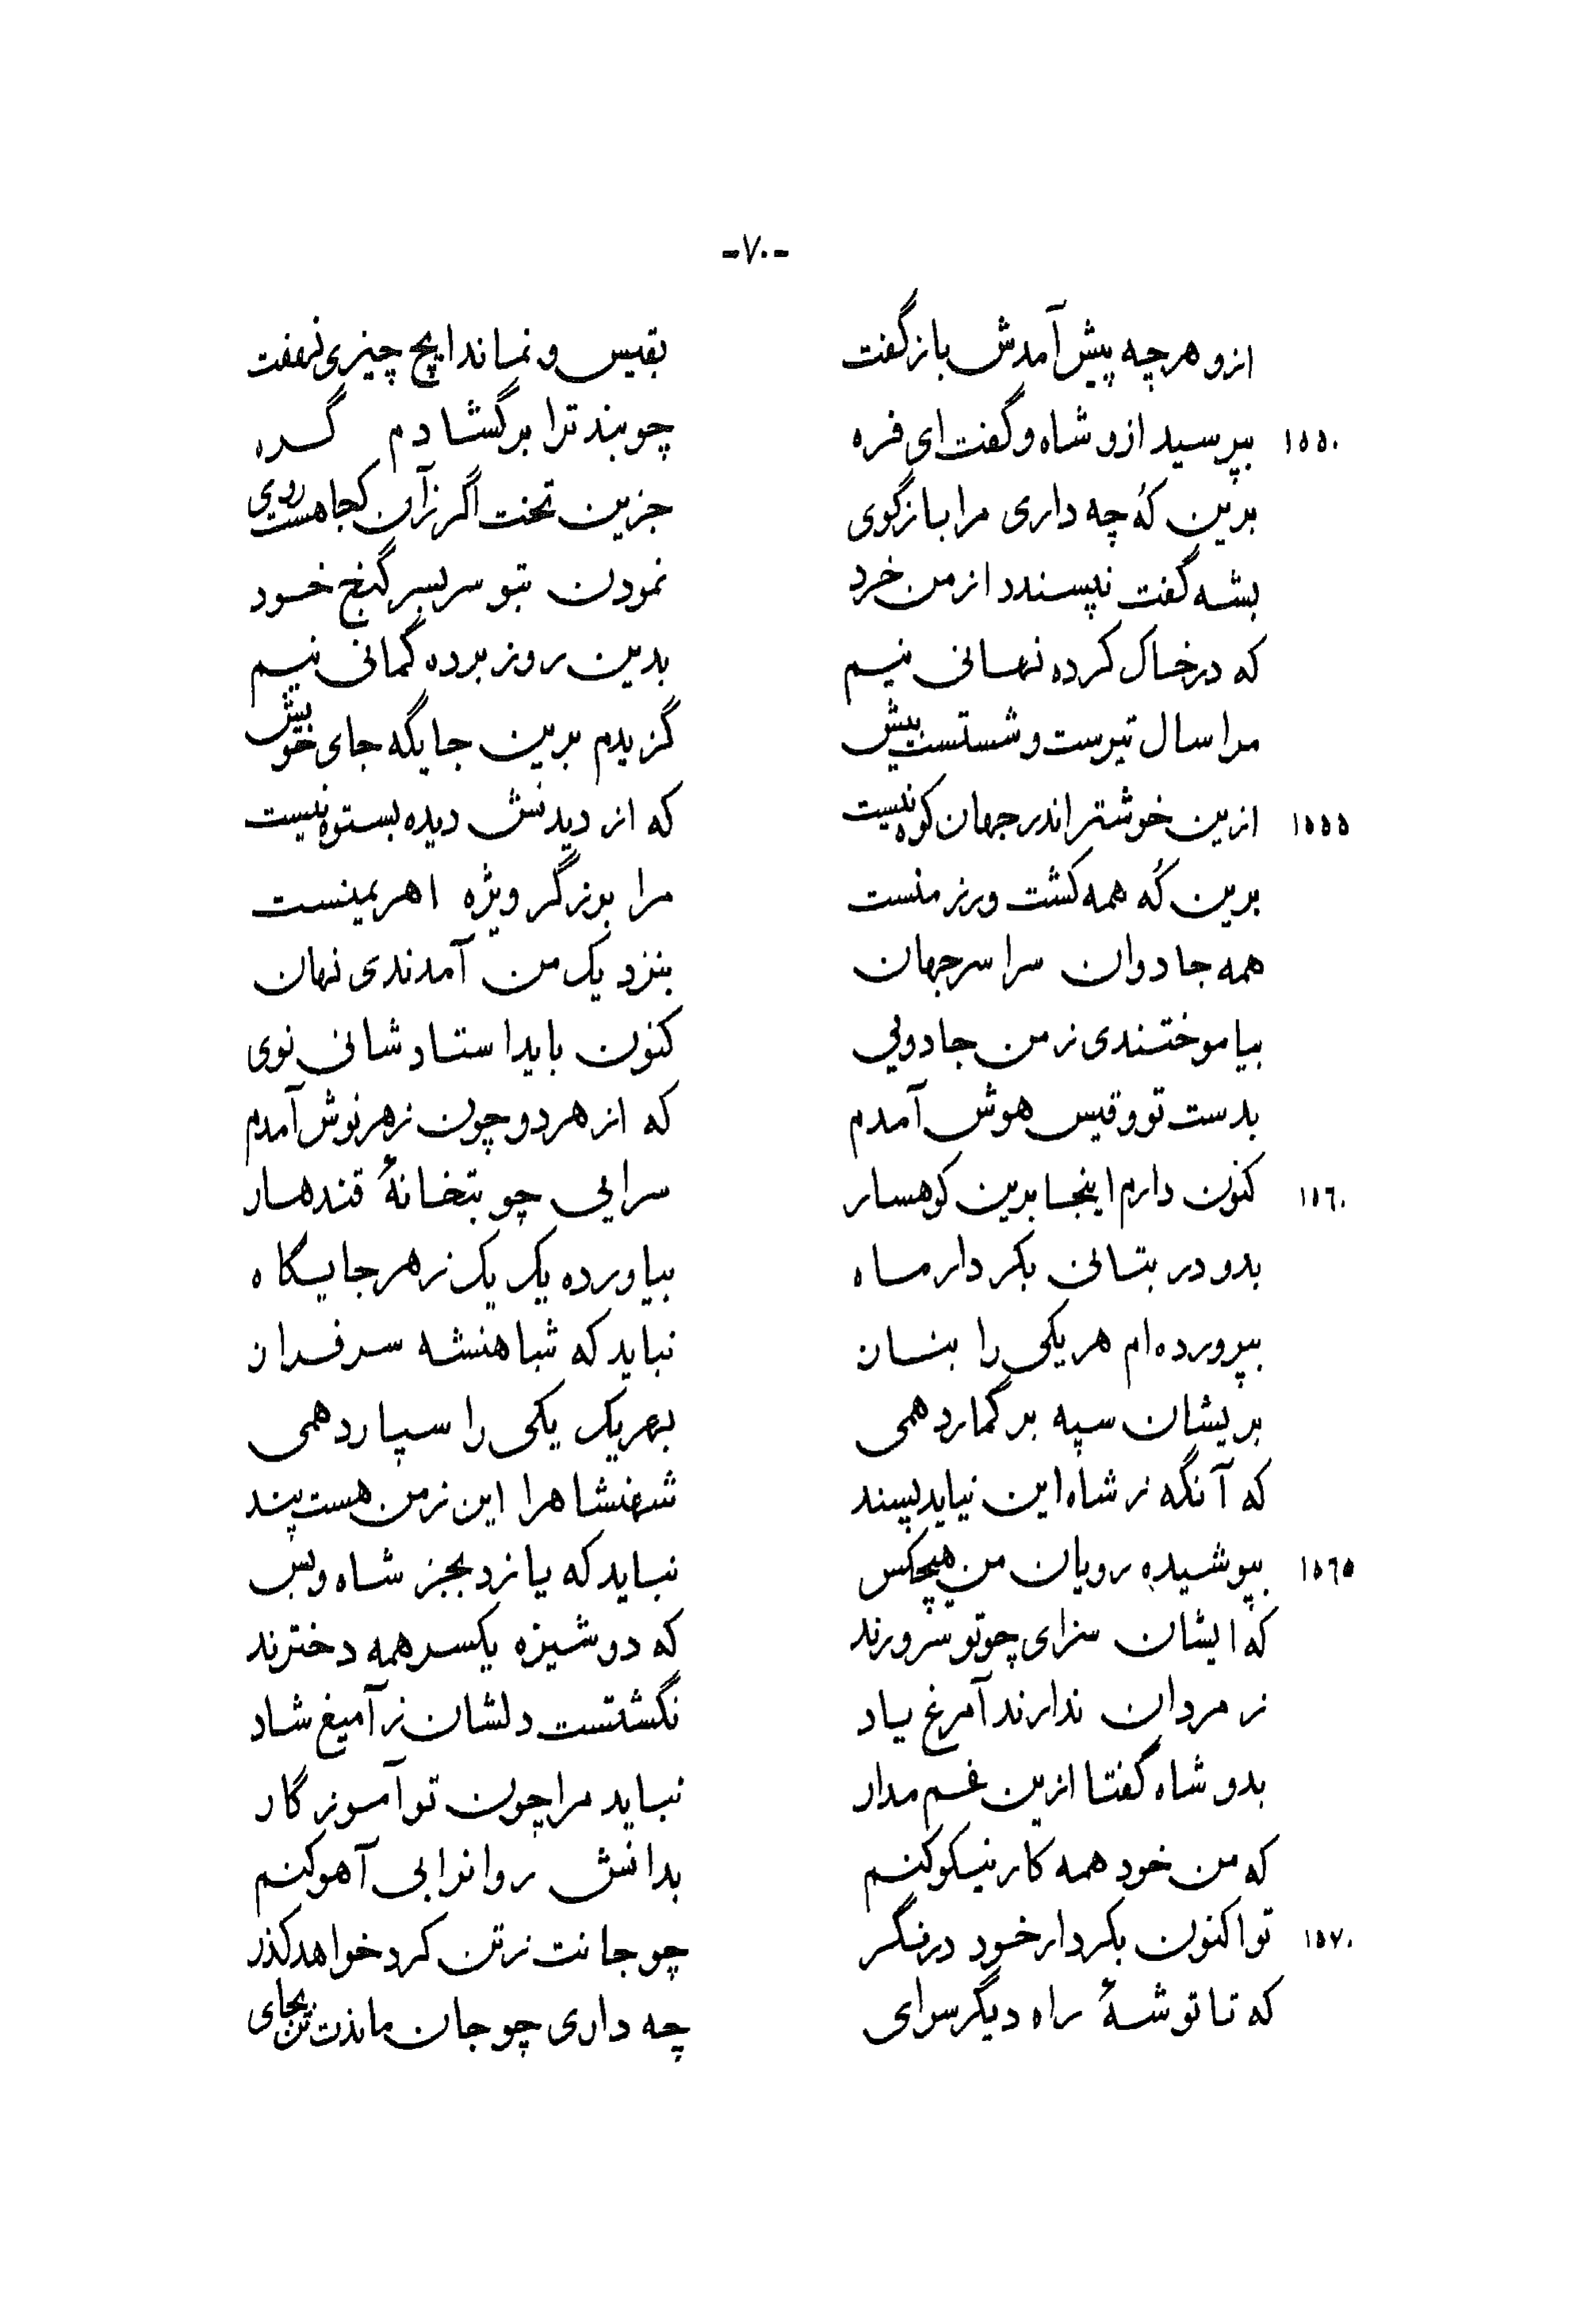 -۷۰-
ازو هرچه پیش آمدش بازگفت بقیس و نماند ایچ چیزی نهفت
۱۵۵۰ بپرسید ازو شاه و گفت ای فره چو بند ترا برگشادم گره
برین کُه چه داری مرا بازگوی جزین تخت اگر زآن کجا هست روی
بشه گفت نپسندد از من خرد نمودن بتو سربسر گنج خود
که در خاک کرده نهانی نیم بدین روز برده گمانی نیم
مرا سال تیرست و شستست بیش گزیدم برین جایگه جای خویش
۱۵۵۵ ازین خوشتر اندر جهان کوه نیست که از دیدنش دیده بستوه نیست
برین کُه همه کشت و رز منست مرا بوزگر ویژه اهریمنست
همه جادوان سراسر جهان بنزدیک من آمدندی نهان
بیاموختندی ز من جادویی کنون باید استادشانی نوی
بدست تو و قیس هوش آمدم که از هر دو چون زهر نوش آمدم
۱۵۶۰ کنون دارم اینجا برین کوهسار سرایی چو بتخانهٔ قندهار
بدو در بتانی بکردار ماه بیاورده یک یک ز هر جایگاه
بپرورده‌ام هر یکی را بنان نباید که شباهنشه سرفران
بریشان سپه برگمارد همی بهریک یکی را سپارد همی
که آنگه ز شاه این نیاید پسند شهنشاه را این ز من هست پند
۱۵۶۵ بپوشیده رویان من هیچکس نباید که یازد بجز شاه و بس
که ایشان سزای چو تو سرورند که دوشیزه یکسر همه دخترند
ز مردان ندارند آمرغ یاد نگشتست دلشان ز آمیغ شاد
بدو شاه گفتا ازین غم مدار نباید مرا چون تو آموزگار
که من خود همه کار نیکو کنم بدانش روانرا بی آهو کنم
۱۵۷۰ تو اکنون بکردار خود درنگر چو جانت ز تن کرد خواهد گذر
که تا توشهٔ راه دیگر سرای چه داری چو جان ماندت تن بجای